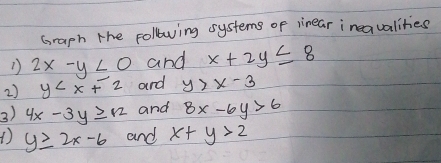 Graph the following systems of linear inequalities
1) 2x - y ≤ 0 and x + 2y ≤ 8
2) y < x + 2 and y > x - 3
3) 4x - 3y ≥ 12 and 8x - 6y > 6
4) y ≥ 2x - 6 and x + y > 2